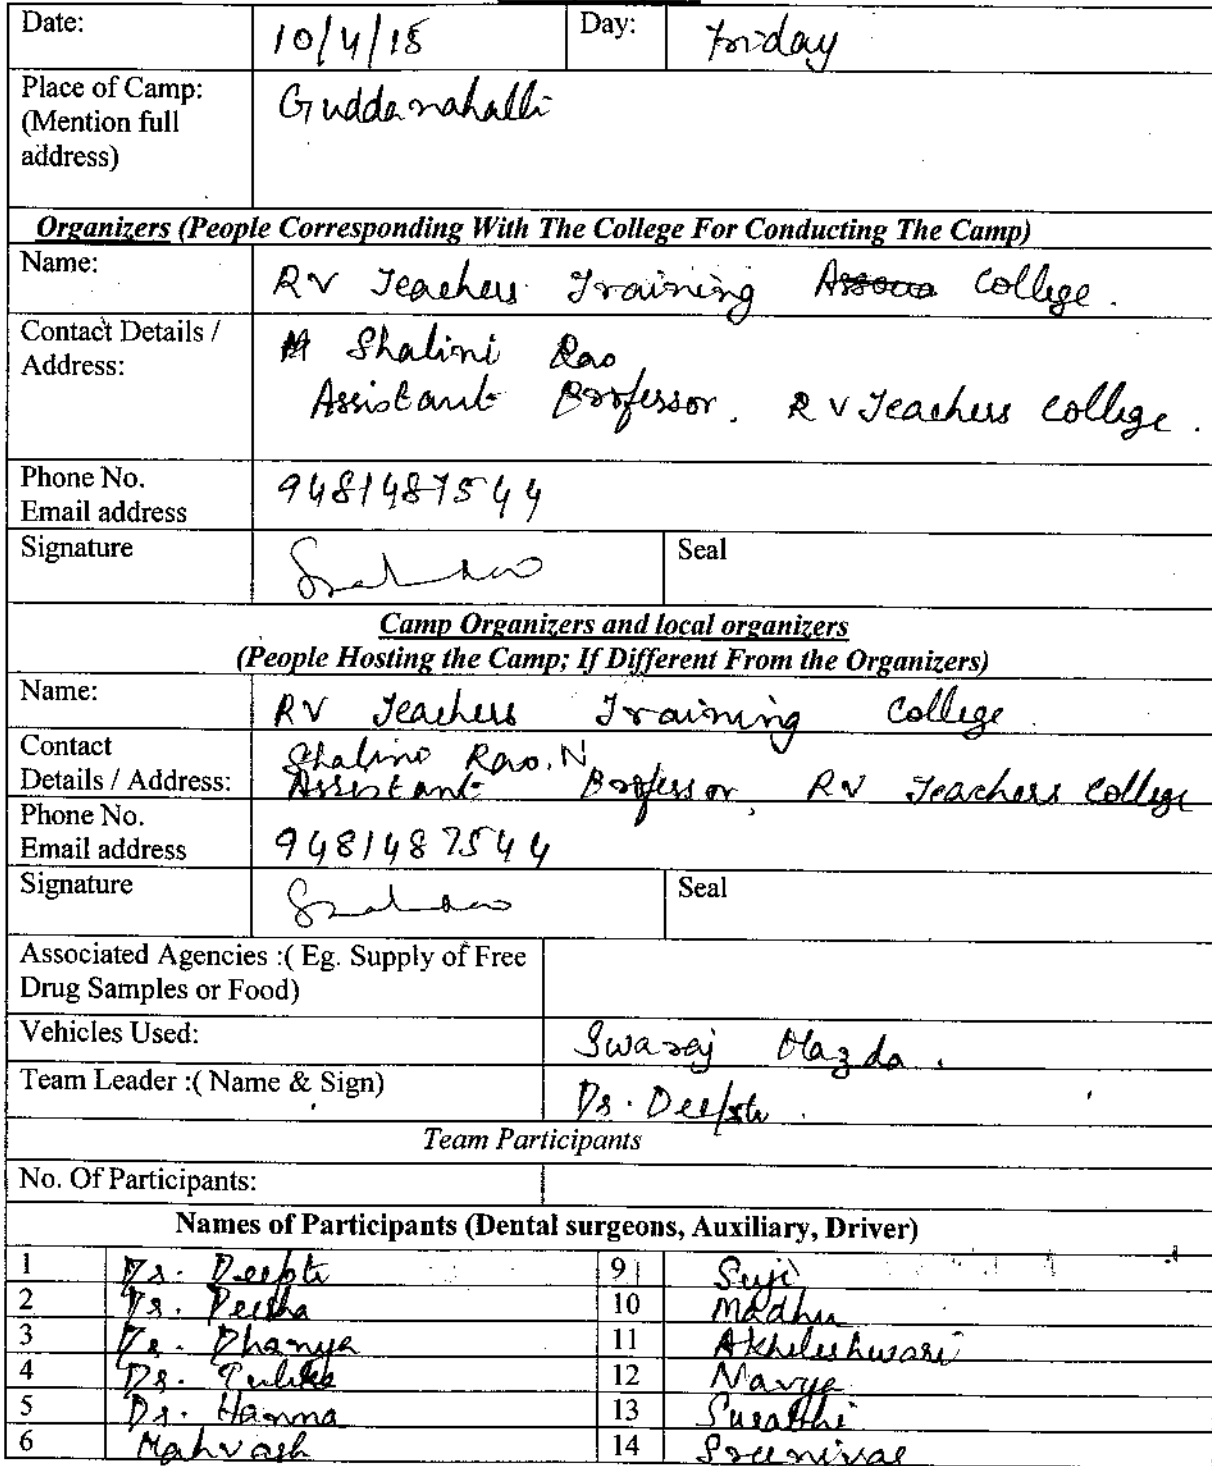 Date: 10/4/15 Day: Friday
Place of Camp: Guddanahalli
(Mention full
address)
Organizers (People Corresponding With The College For Conducting The Camp)
Name: RV Teachers Training College.
Contact Details / Shalini Rao
Address: Assistant Professor. RV Teachers College.
Phone No. 9481487544
Email address
Signature Seal
Camp Organizers and local organizers
(People Hosting the Camp; If Different From the Organizers)
Name: RV Teachers Training College
Contact Shalini Rao. N
Details / Address: Assistant Professor, RV Teachers College
Phone No.
Email address 9481487544
Signature Seal
Associated Agencies :( Eg. Supply of Free
Drug Samples or Food)
Vehicles Used: Swaraj Mazda.
Team Leader :( Name & Sign) Dr. Deepti
Team Participants
No. Of Participants:
Names of Participants (Dental surgeons, Auxiliary, Driver)
1 Dr. Deepti 9 Suji
2 Dr. Deesha 10 Madhu
3 Dr. Dhanya 11 Akhileshwari
4 Dr. Tulika 12 Navya
5 Dr. Hanna 13
6 Mahvash 14 Sreenivas